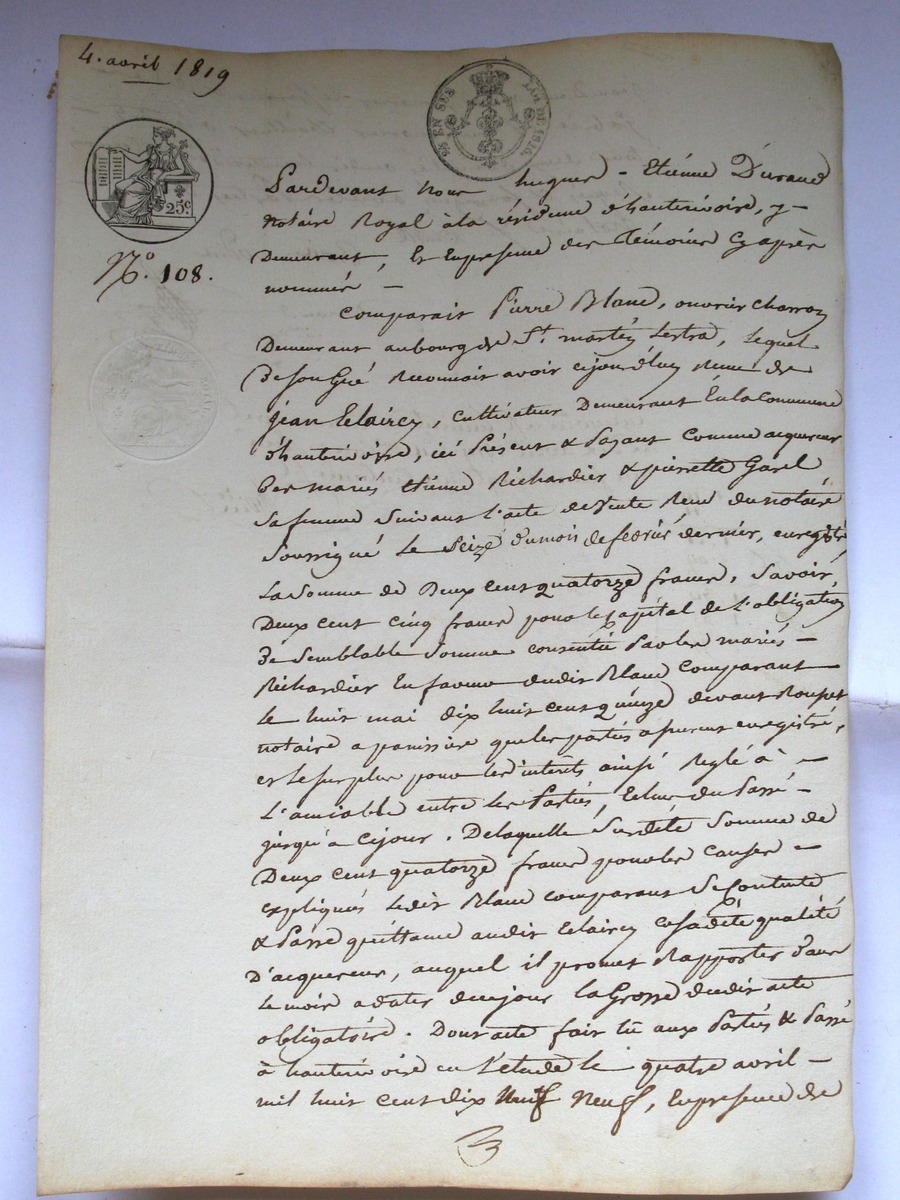 4. avril 1819
25 EN SUS
LOI DE 1816.
25c
No. 108.
Pardevant nous hugues - Etiénne Durand
notaire Royal à la résidence d'hauterivoire, y-
Demeurant, Et En presence des Témoins Cy après
nommés -
Comparait Pierre Blanc, ouvrier charron
Demeurant au bourg de St. martin Lestra, Lequel
De son Gré Reconnait avoir ce jourd'huy Reçu de
jean Eclaircy, cultivateur Demeurant En la Commune
d'hauterivoire, ici Présent & Payant Comme acquereur
Des mariés Etienne Richardier & pierrette Garel
sa femme Suivant L'acte de Vente Reçu du notaire
soussigné Le seize du mois de fevrier dernier, enregistré
La somme de Deux cent quatorze francs, savoir,
Deux cent cinq francs pour le Capital de L'obligation
De semblable somme consentie Par les mariés -
Richardier En faveur dudit Blanc Comparant
Le huit mai dix huit cent quinze devant
notaire a panissiere que les parties assurent enregistré,
et Le surplus pour Les interêts ainsi Reglé à -
L'amiable entre Les Parties, Echus du Passé -
jusqu'à ce jour. De laquelle susdite Somme de
Deux cent quatorze francs pour les causes -
expliquées Ledit Blanc comparant Se Contente
& Passe quittance audit Eclaircy En sa dite qualité
D'acquereur, auquel il promet Rapporter dans
Le mois a dater de ce jour La Grosse dudit acte
obligatoire. Dont acte fait Lu aux Parties & Passé
à hauterivoire en L'etude Le quatre avril -
mil huit cent dix Neuf Neuf, En presence de